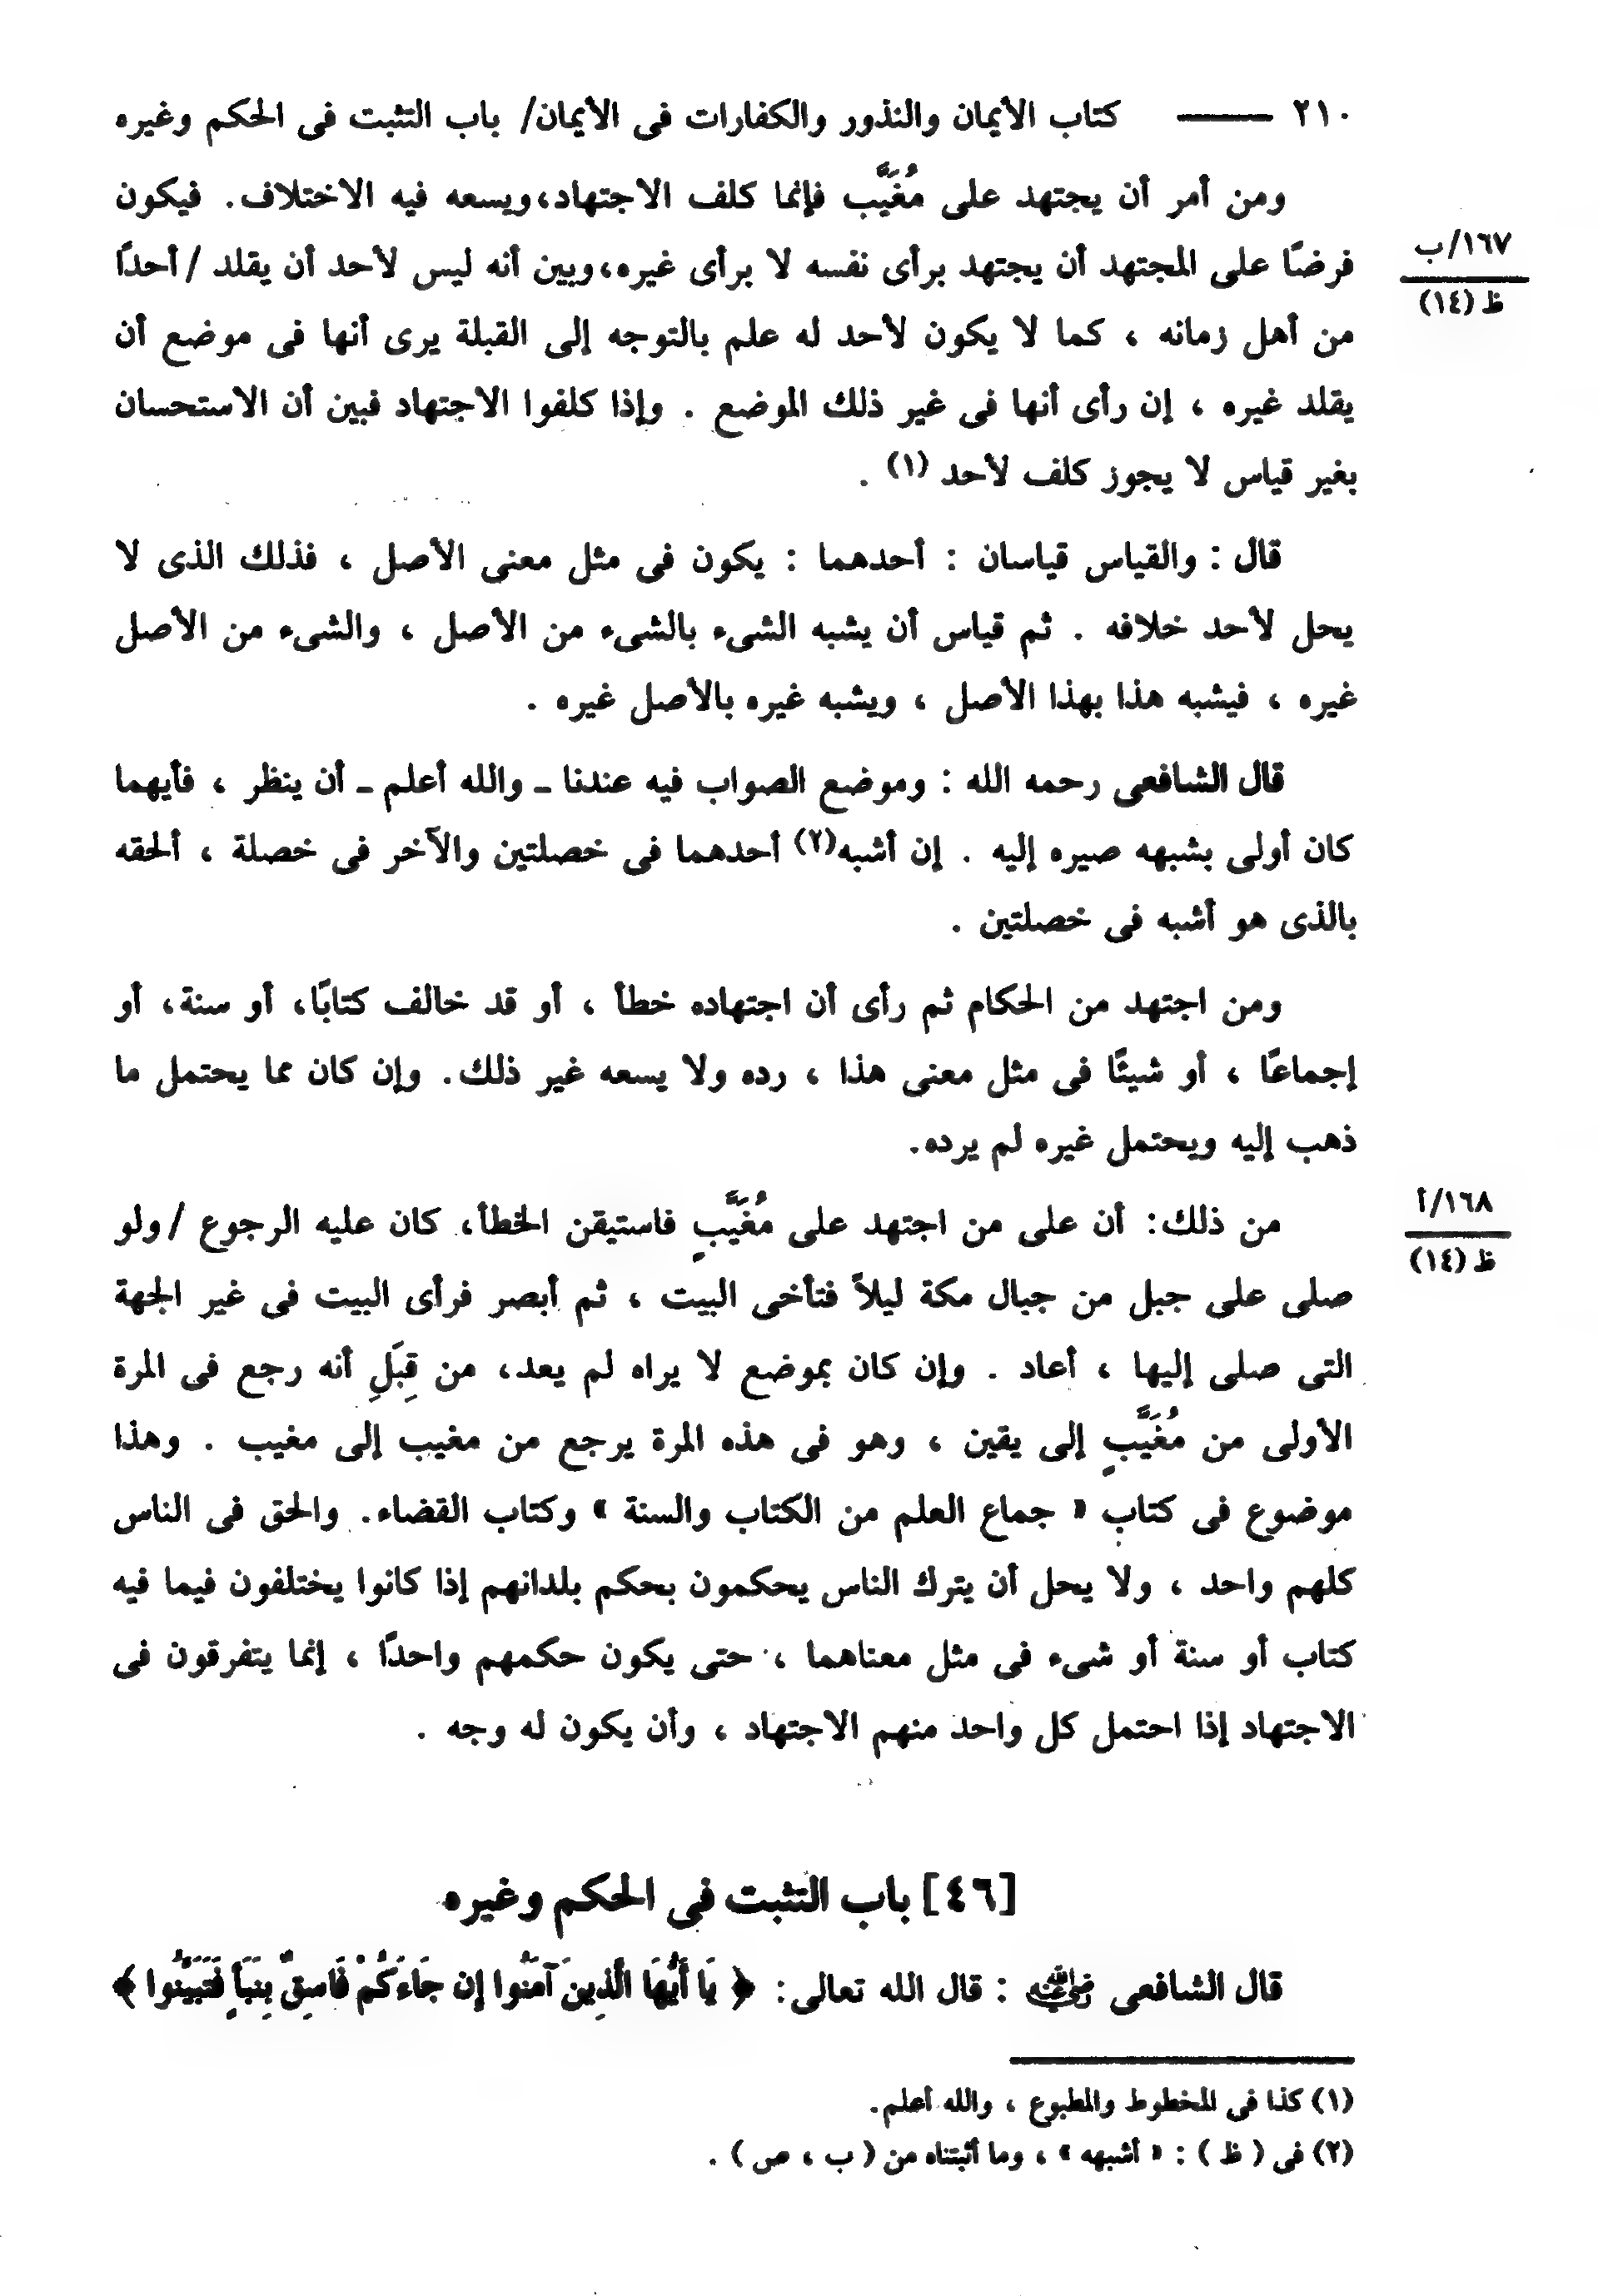 ٢١٠ ـــــــ كتاب الأيمان والنذور والكفارات فى الأيمان/ باب التثبت فى الحكم وغيره
ومن أمر أن يجتهد على مُغَيَّب فإنما كلف الاجتهاد،ويسعه فيه الاختلاف. فيكون
١٦٧/ب
فرضًا على المجتهد أن يجتهد برأى نفسه لا برأى غيره،وبين أنه ليس لأحد أن يقلد /أحدًا
ظ (١٤)
من أهل زمانه ، كما لا يكون لأحد له علم بالتوجه إلى القبلة يرى أنها فى موضع أن
يقلد غيره ، إن رأى أنها فى غير ذلك الموضع . وإذا كلفوا الاجتهاد فبين أن الاستحسان
بغير قياس لا يجوز كلف لأحد (١) .
قال : والقياس قياسان : أحدهما : يكون فى مثل معنى الأصل ، فذلك الذى لا
يحل لأحد خلافه . ثم قياس أن يشبه الشىء بالشىء من الأصل ، والشىء من الأصل
غيره ، فيشبه هذا بهذا الأصل ، ويشبه غيره بالأصل غيره .
قال الشافعى رحمه الله : وموضع الصواب فيه عندنا ـ والله أعلم ـ أن ينظر ، فأيهما
كان أولى بشبهه صيره إليه . إن أشبه(٢) أحدهما فى خصلتين والآخر فى خصلة ، ألحقه
بالذى هو أشبه فى خصلتين .
ومن اجتهد من الحكام ثم رأى أن اجتهاده خطأ ، أو قد خالف كتابًا، أو سنة، أو
إجماعًا ، أو شيئًا فى مثل معنى هذا ، رده ولا يسعه غير ذلك. وإن كان مما يحتمل ما
ذهب إليه ويحتمل غيره لم يرده.
١٦٨/أ
من ذلك: أن على من اجتهد على مُغَيَّبٍ فاستيقن الخطأ، كان عليه الرجوع /ولو
ظ (١٤)
صلى على جبل من جبال مكة ليلاً فتأخى البيت ، ثم أبصر فرأى البيت فى غير الجهة
التى صلى إليها ، أعاد . وإن كان بموضع لا يراه لم يعد، من قِبَلِ أنه رجع فى المرة
الأولى من مُغَيَّبٍ إلى يقين ، وهو فى هذه المرة يرجع من مغيب إلى مغيب . وهذا
موضوع فى كتاب « جماع العلم من الكتاب والسنة » وكتاب القضاء. والحق فى الناس
كلهم واحد ، ولا يحل أن يترك الناس يحكمون بحكم بلدانهم إذا كانوا يختلفون فيما فيه
كتاب أو سنة أو شىء فى مثل معناهما ، حتى يكون حكمهم واحدًا ، إنما يتفرقون فى
الاجتهاد إذا احتمل كل واحد منهم الاجتهاد ، وأن يكون له وجه .
[٤٦] باب التثبت فى الحكم وغيره
قال الشافعى رضي الله عنه : قال الله تعالى: ﴿ يَا أَيُّهَا الَّذِينَ آمَنُوا إِن جَاءَكُمْ فَاسِقٌ بِنَبَأٍ فَتَبَيَّنُوا ﴾
(١) كذا فى المخطوط والمطبوع ، والله أعلم.
(٢) فى ( ظ ) : « أشبهه » ، وما أثبتناه من ( ب ، ص ) .